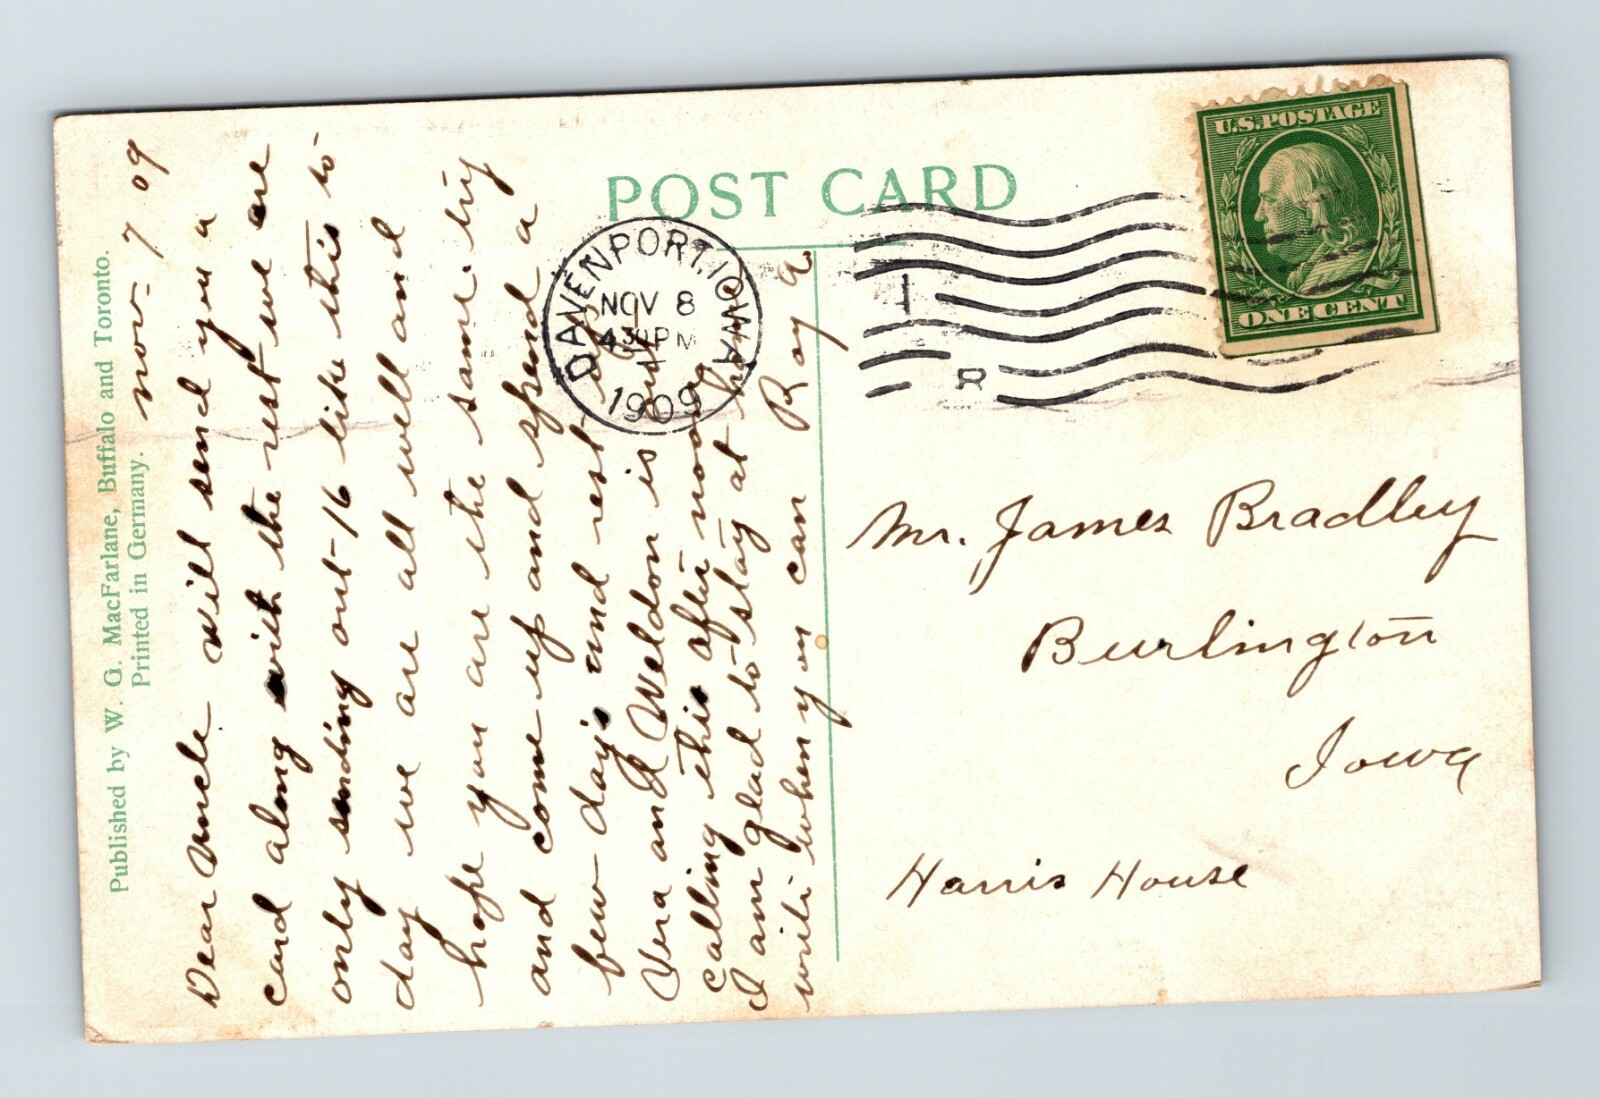 Published by W. G. MacFarlane, Buffalo and Toronto.
Printed in Germany.
Nov- 7 09
Dear Uncle will send you a
card along with the rest we are
only sending out 16 like this to
day we are all well and
hope you are the same try
and come up and spend a
few days and rest up
Vera and Weldon is out
calling this after noon
I am glad to stay at home
write when you can Ray
POST CARD
DAVENPORT, IOWA
NOV 8
430PM
1909
1
R
U.S. POSTAGE
ONE CENT
Mr. James Bradley
Burlington
Iowa
Harris House